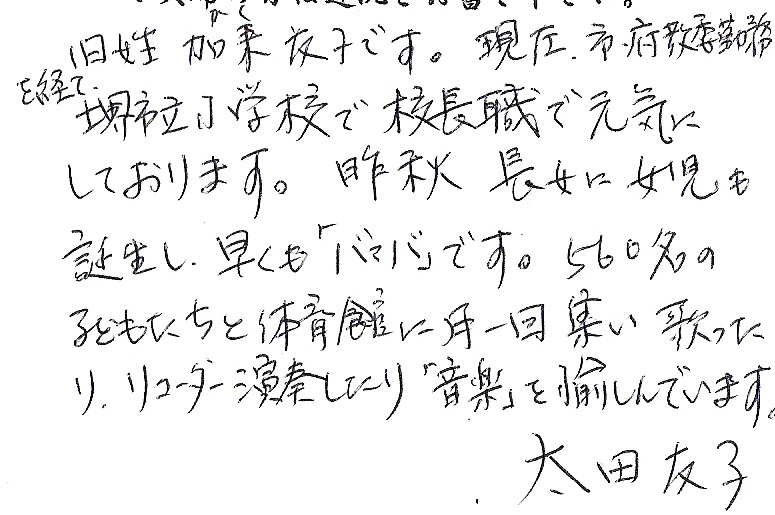 旧姓 加来 友子です。 現在、市・府教委勤務
を経て、
堺市立小学校で 校長職で元気に
しております。 昨秋 長女に 女児も
誕生し、早くも「バァバ」です。560名の
子どもたちと体育館に月一回 集い 歌った
り、リコーダー演奏したり「音楽」を愉しんでいます。
太田友子